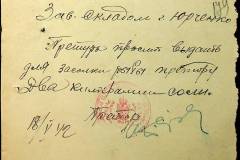 Зав. складом г. Юрченко
Претура просит выдать
для засолки рыбы претору
Два килограмма соли.
Претор
18/V 42